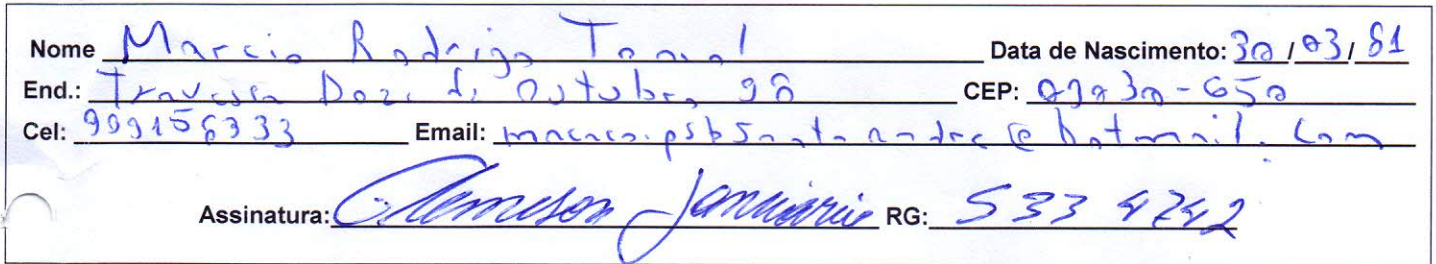 Nome Marcio Rodrigo Data de Nascimento: 30 / 03 / 81
End.: Travessa Doze de Outubro 98 CEP: 09930-650
Cel: Email: macaco.psbsantoandre@hotmail.com
Assinatura: Januario RG: 533 4742